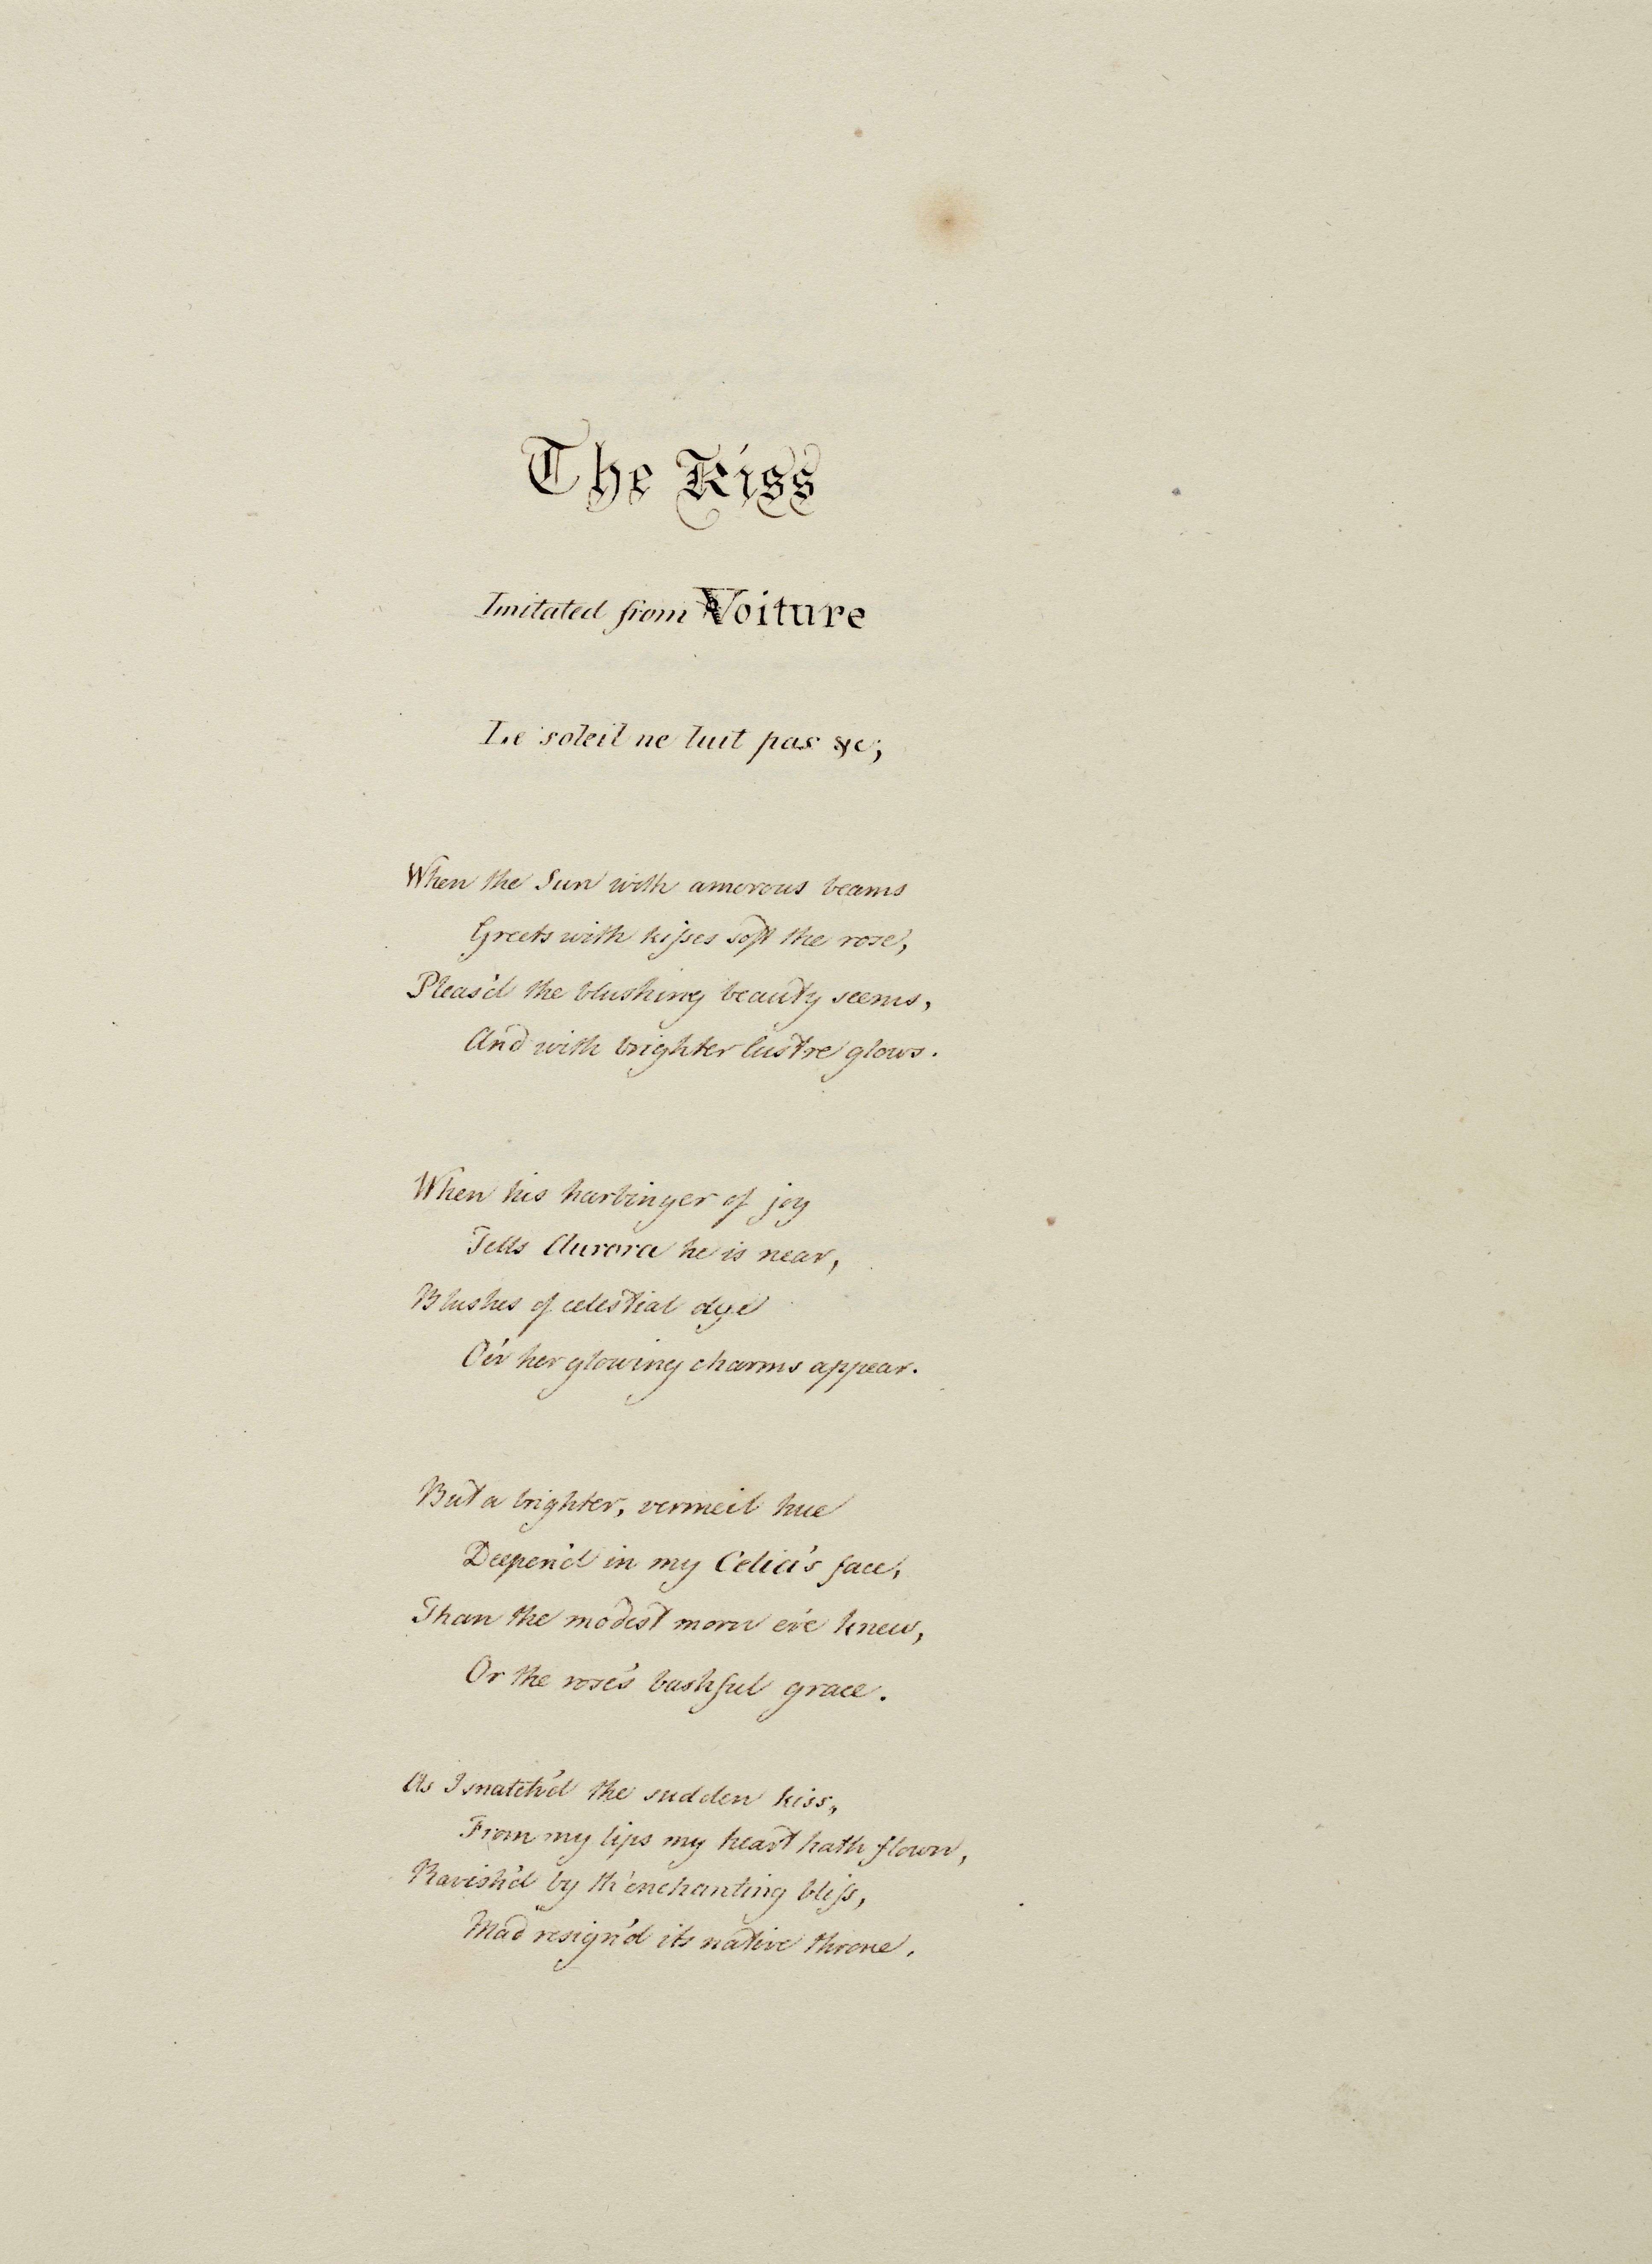 The Kiss
Imitated from Voiture
Le soleil ne luit pas &c;
When the Sun with amorous beams
Greets with kisses soft the rose,
Pleas'd the blushing beauty seems,
And with brighter lustre glows.
When his harbinger of joy
Tells Aurora he is near,
Blushes of celestial dye
O'er her glowing charms appear.
But a brighter, vermeil hue
Deepen'd in my Celia's face,
Than the modest morn e'er knew,
Or the rose's bashful grace.
As I snatch'd the sudden kiss,
From my lips my heart hath flown,
Ravish'd by th'enchanting bliss,
Mad resign'd its native throne.